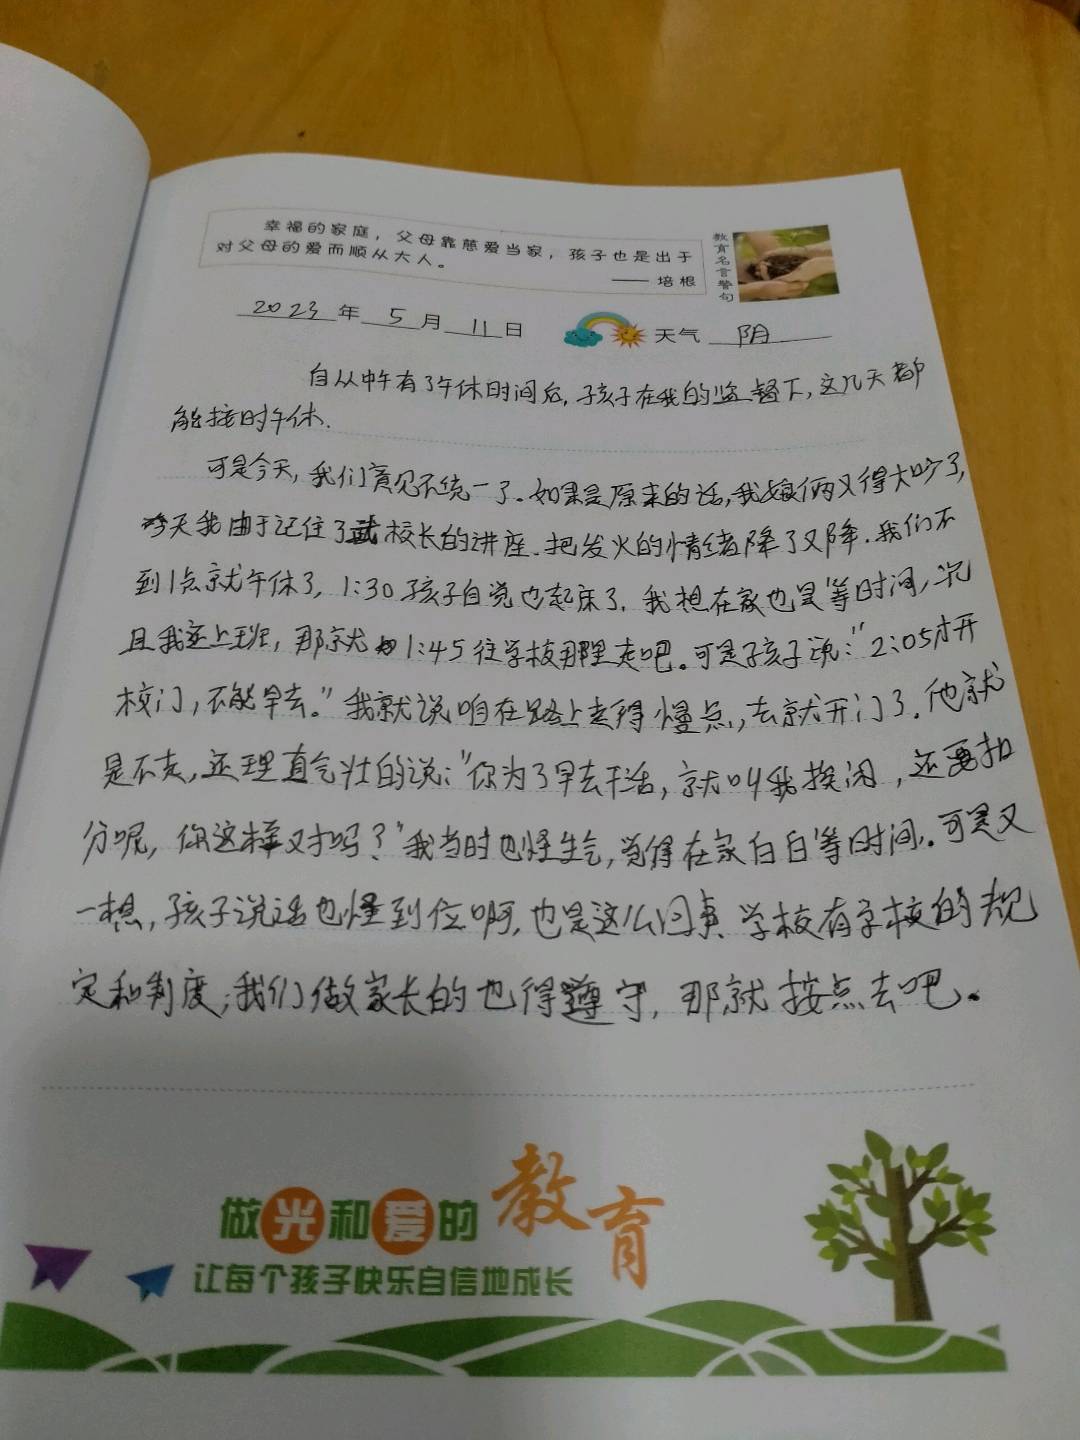 幸福的家庭，父母靠慈爱当家，孩子也是出于
对父母的爱而顺从大人。
—— 培根
教育名言警句
2023年5月11日 天气 阴
自从中午有了午休时间后，孩子在我的监督下，这几天都
能按时午休.
可是今天，我们意见不统一了。如果是原来的话，我娘俩又得大吵了，
今天我由于记住了校长的讲座.把发火的情绪降了又降.我们不
到1点就午休了，1:30孩子自觉也起床了.我想在家也是等时间，况
且我还上班，那就1:45往学校那里走吧。可是孩子说："2:05才开
校门，不能早去。"我就说咱在路上走得慢点，去就开门了.他就
是不走，还理直气壮的说："你为了早去干活，就叫我挨闷，还要扣
分呢，你这样对吗？"我当时也怪生气，觉得在家白白等时间。可是又
一想，孩子说话也怪到位啊，也是这么回事.学校有学校的规
定和制度，我们做家长的也得遵守，那就按点去吧。
做光和爱的教育
让每个孩子快乐自信地成长